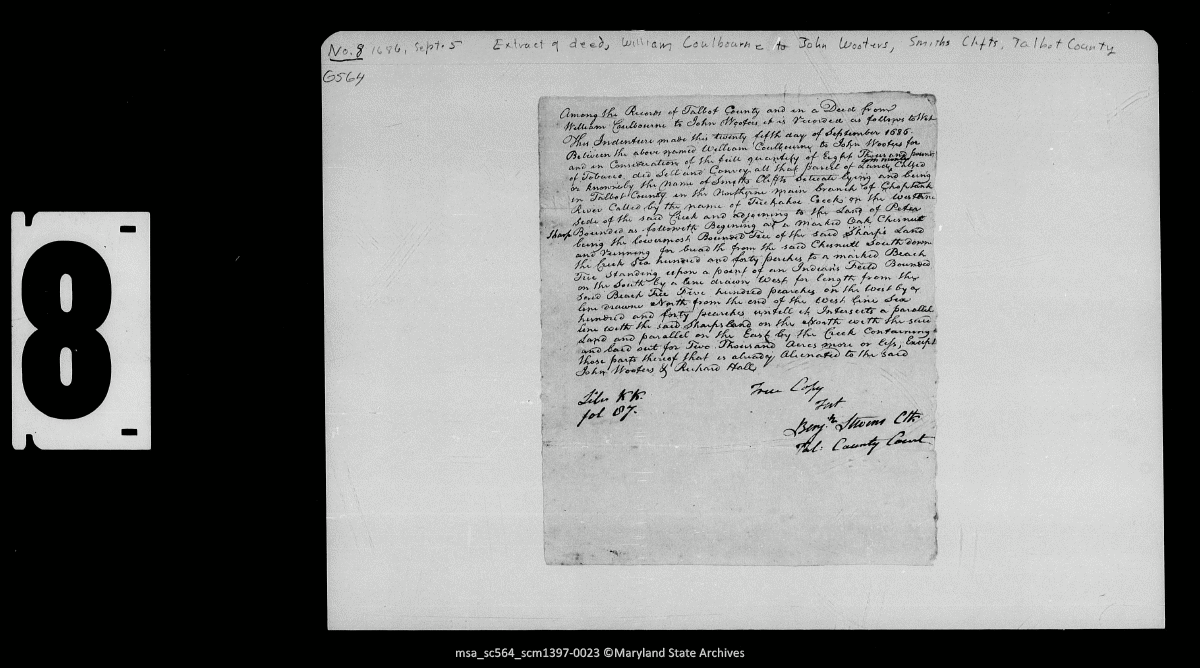 No. 8 1686, Sept. 5 Extract of deed, William Coulbourne to John Wooters, Smiths Clifts, Talbot County
G564
8
Among the Records of Talbot County and in a Deed from
William Coulbourne to John Wooters it is recorded as follows to Wit
This Indenture made this twenty fifth day of September 1686
Between the above named William Coulbourne to John Wooters for
and in Consideration of the full quantity of Eight Thousand pounds
of Tobacco, did Sell and Convey all that parcel of Land Called
or known by the name of Smiths Clifts Scituate lying and being
in Talbot County in the Northerne main branch of Choptank
River Called by the name of Tuckahoe Creek on the Westerne
side of the said Creek and adjoining to the Land of Peter
Sharp Bounded as followeth Begining at a Marked Oak Chesnut
being the lowermost Bounded Tree of the said Sharp's Land
and Running for breadth from the said Chesnutt South down
the Creek Six hundred and forty perches to a marked Beach
Tree standing upon a point of an Indian Field Bounded
on the South by a line drawn West for length from the
said Beach Tree Five hundred pearches on the West by a
line drawne North from the end of the West line Six
hundred and forty pearches untill it Intersects a parallel
line with the said Sharps Land on the North with the said
Land and parallel on the East by the Creek Containing
and laid out for Two Thousand Acres more or less, Except
those parts thereof that is already Alienated to the said
John Wooters & Richard Hall
Liber KK.
fol 187.
True Copy
Test
Benj.n Stevens Clk
Tal: County Court
msa_sc564_scm1397-0023 ©Maryland State Archives